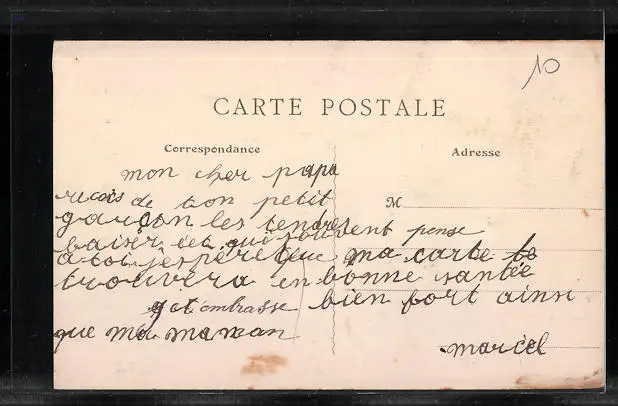 10
CARTE POSTALE
Correspondance
Adresse
M
mon cher papa
recois de ton petit
garçon les tendres
baiser, et qui souvent pense
a toi jespere que ma carte te
trouvera en bonne santée
je t embrasse bien fort ainsi
que ma maman
marcel